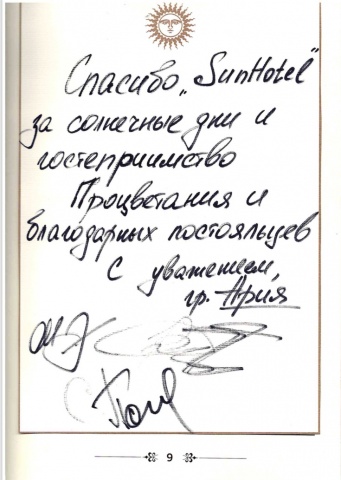 Спасибо „SunHotel"
за солнечные дни и
гостеприимство
Процветания и
благодарных постояльцев
С уважением,
гр. Ария
9